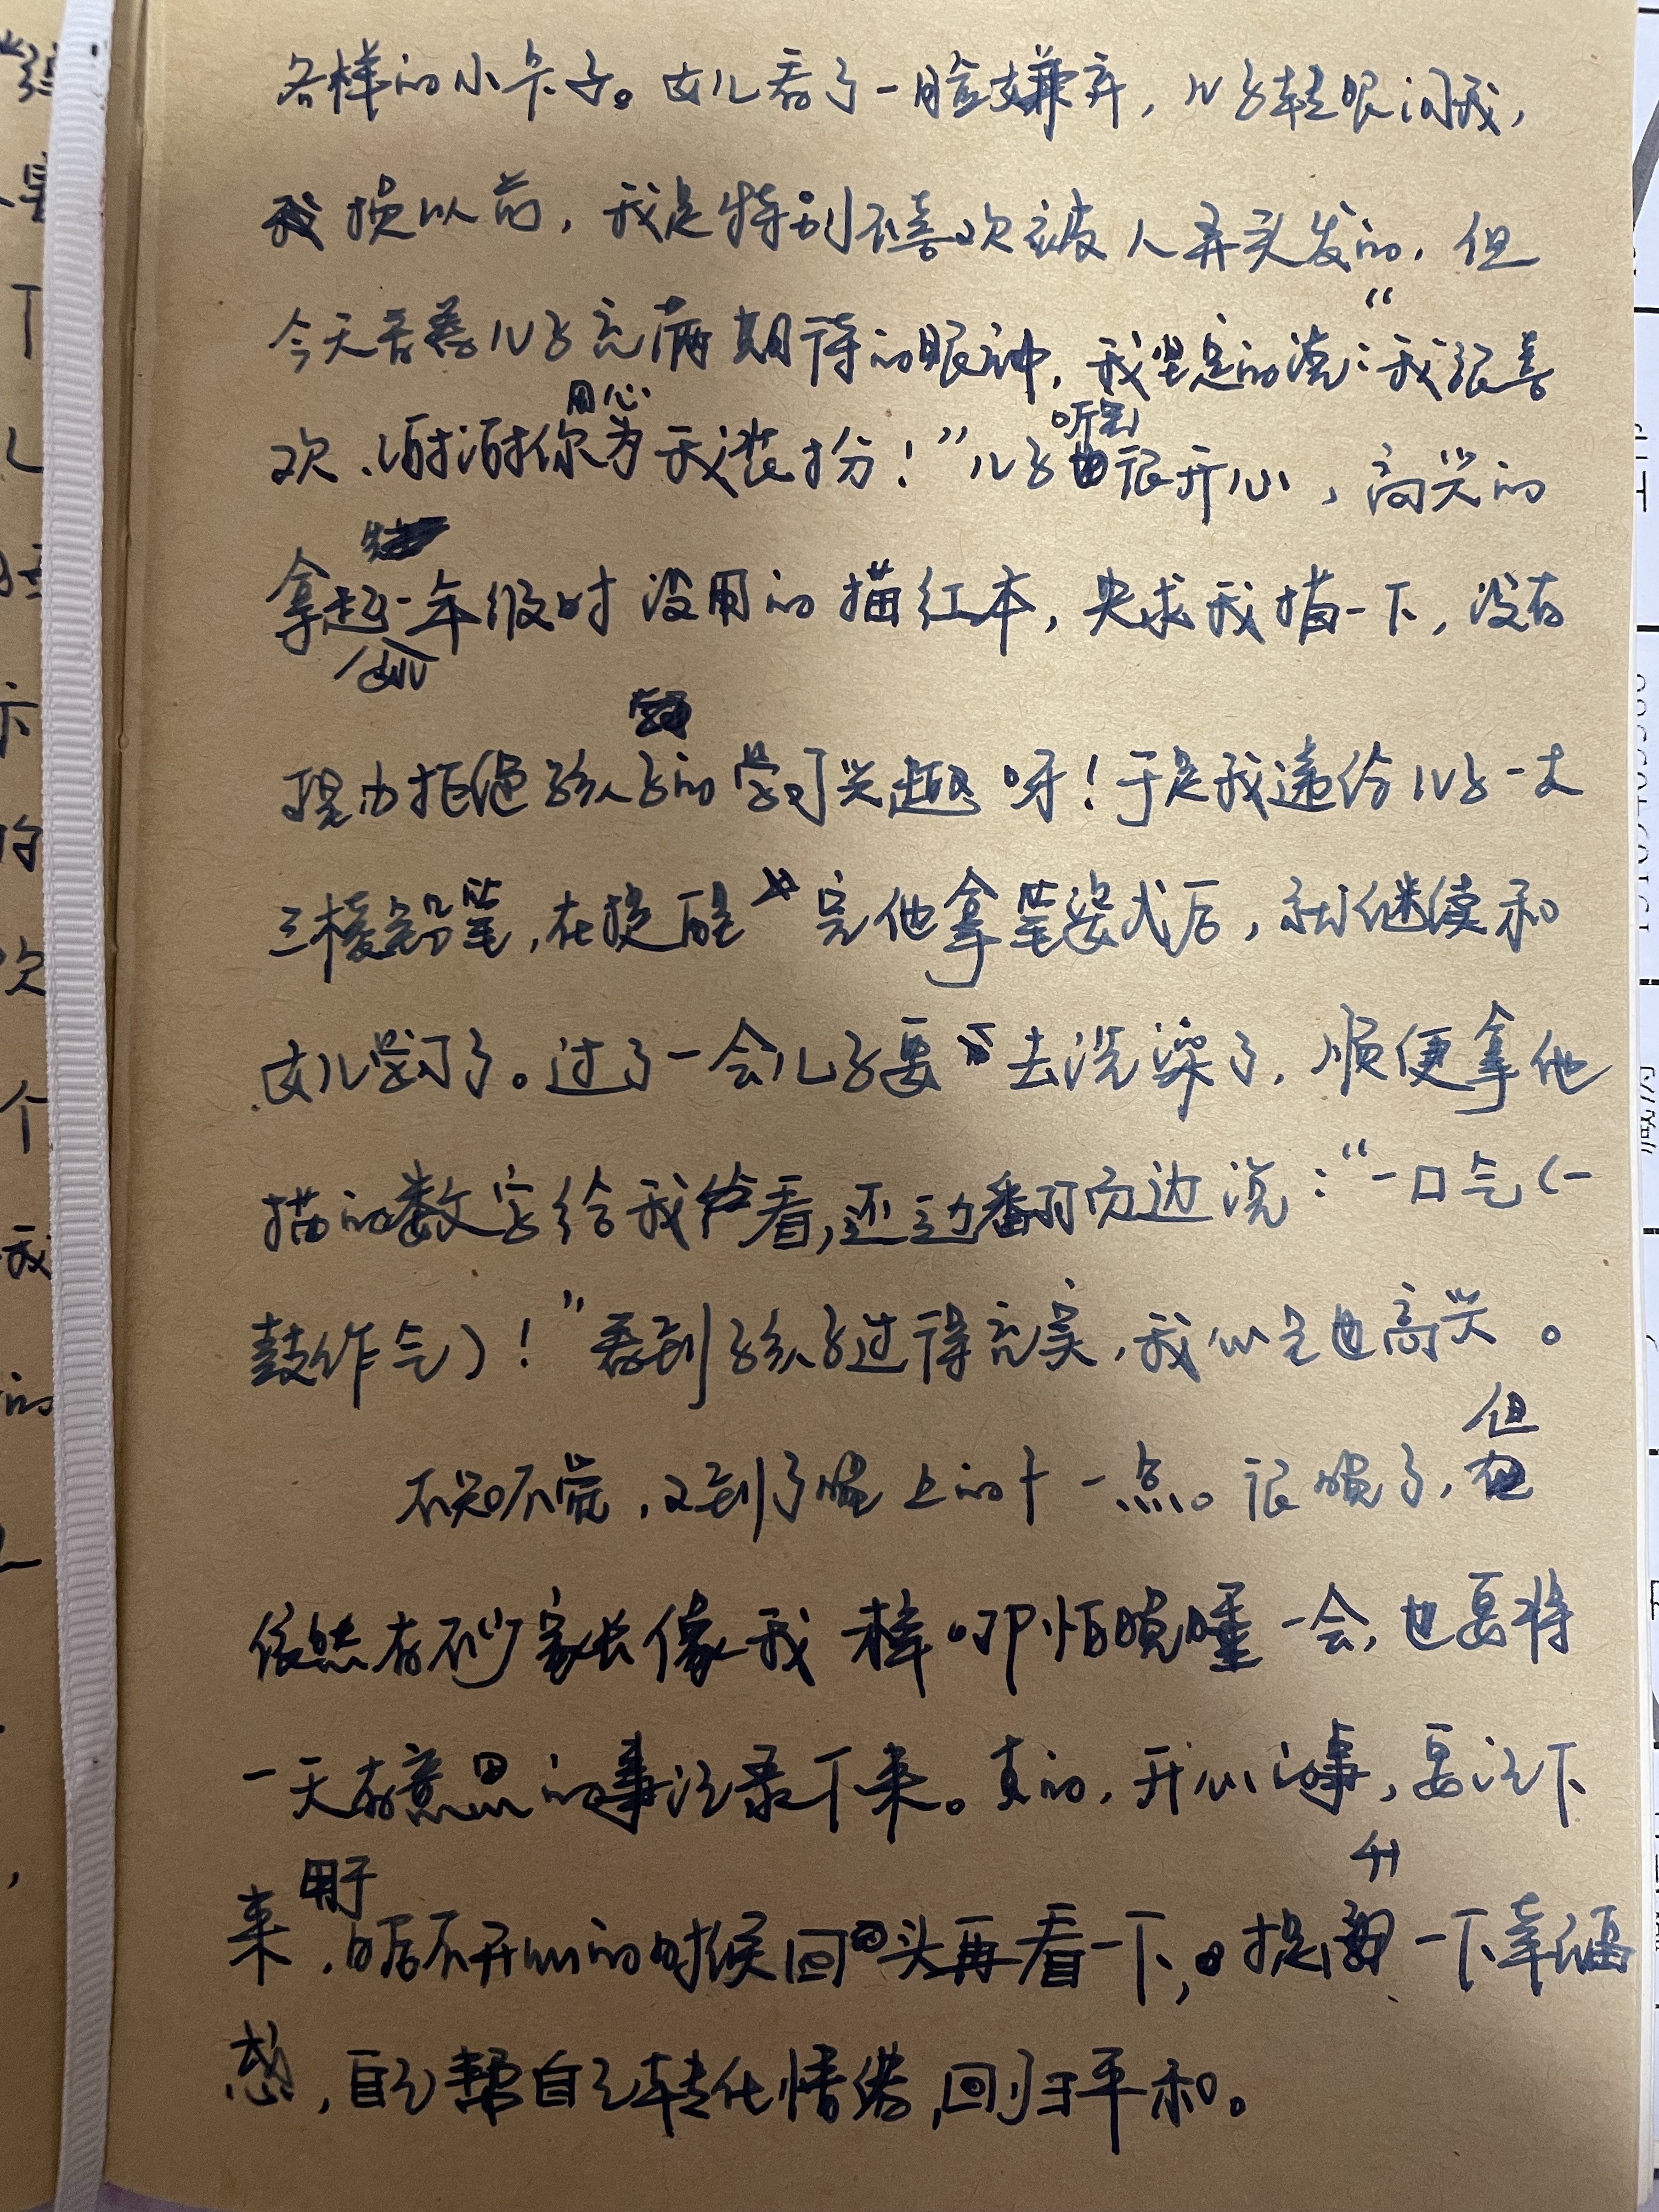 各样的小卡子。女儿看了一脸嫌弃，儿子转眼问我，
我换以前，我是特别不喜欢被人弄头发的，但
今天看着儿子充满期待的眼神，我坚定的说：“我很喜
欢，谢谢你用心为我装扮！”儿子听到很开心，高兴的
拿起一年级时没用的描红本，央求我描一下，没有
理由拒绝孩子的学习兴趣呀！于是我递给儿子一支
三棱铅笔，在提醒完他拿笔姿式后，就继续和
女儿学习了。过了一会儿子要去洗澡了，顺便拿他
描的数字给我看，还边翻页边说：“一口气（一
鼓作气）！”看到孩子过得充实，我心里也高兴。
不知不觉，又到了晚上的十一点。很晚了，但
依然有不少家长像我一样哪怕晚睡一会，也要将
一天有意思的事记录下来。真的，开心的事，要记下
来，用于日后不开心的时候回头再看一下，提升一下幸福
感，自己帮自己转化情绪，回归平和。